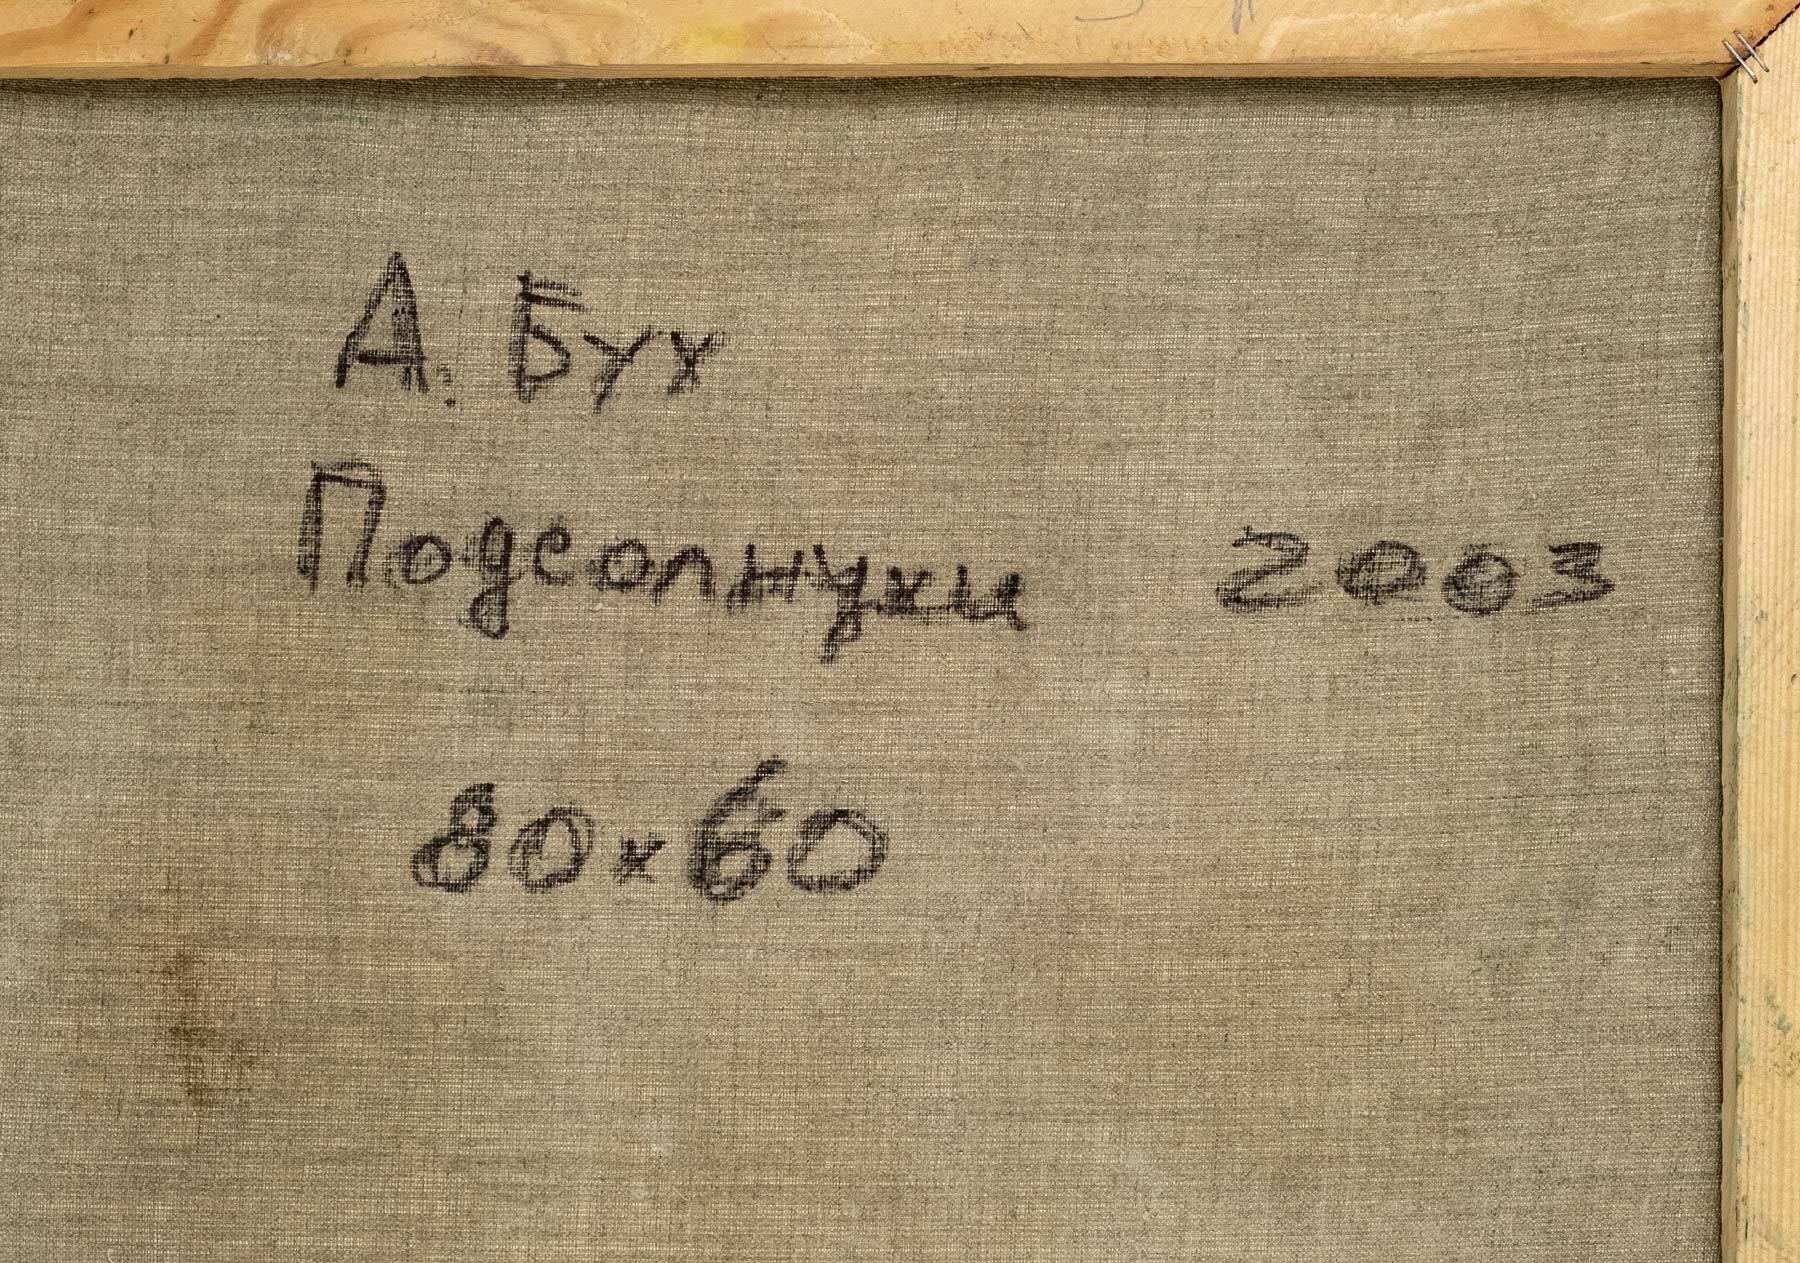 А. Бух
Подсолнухи 2003
80x60